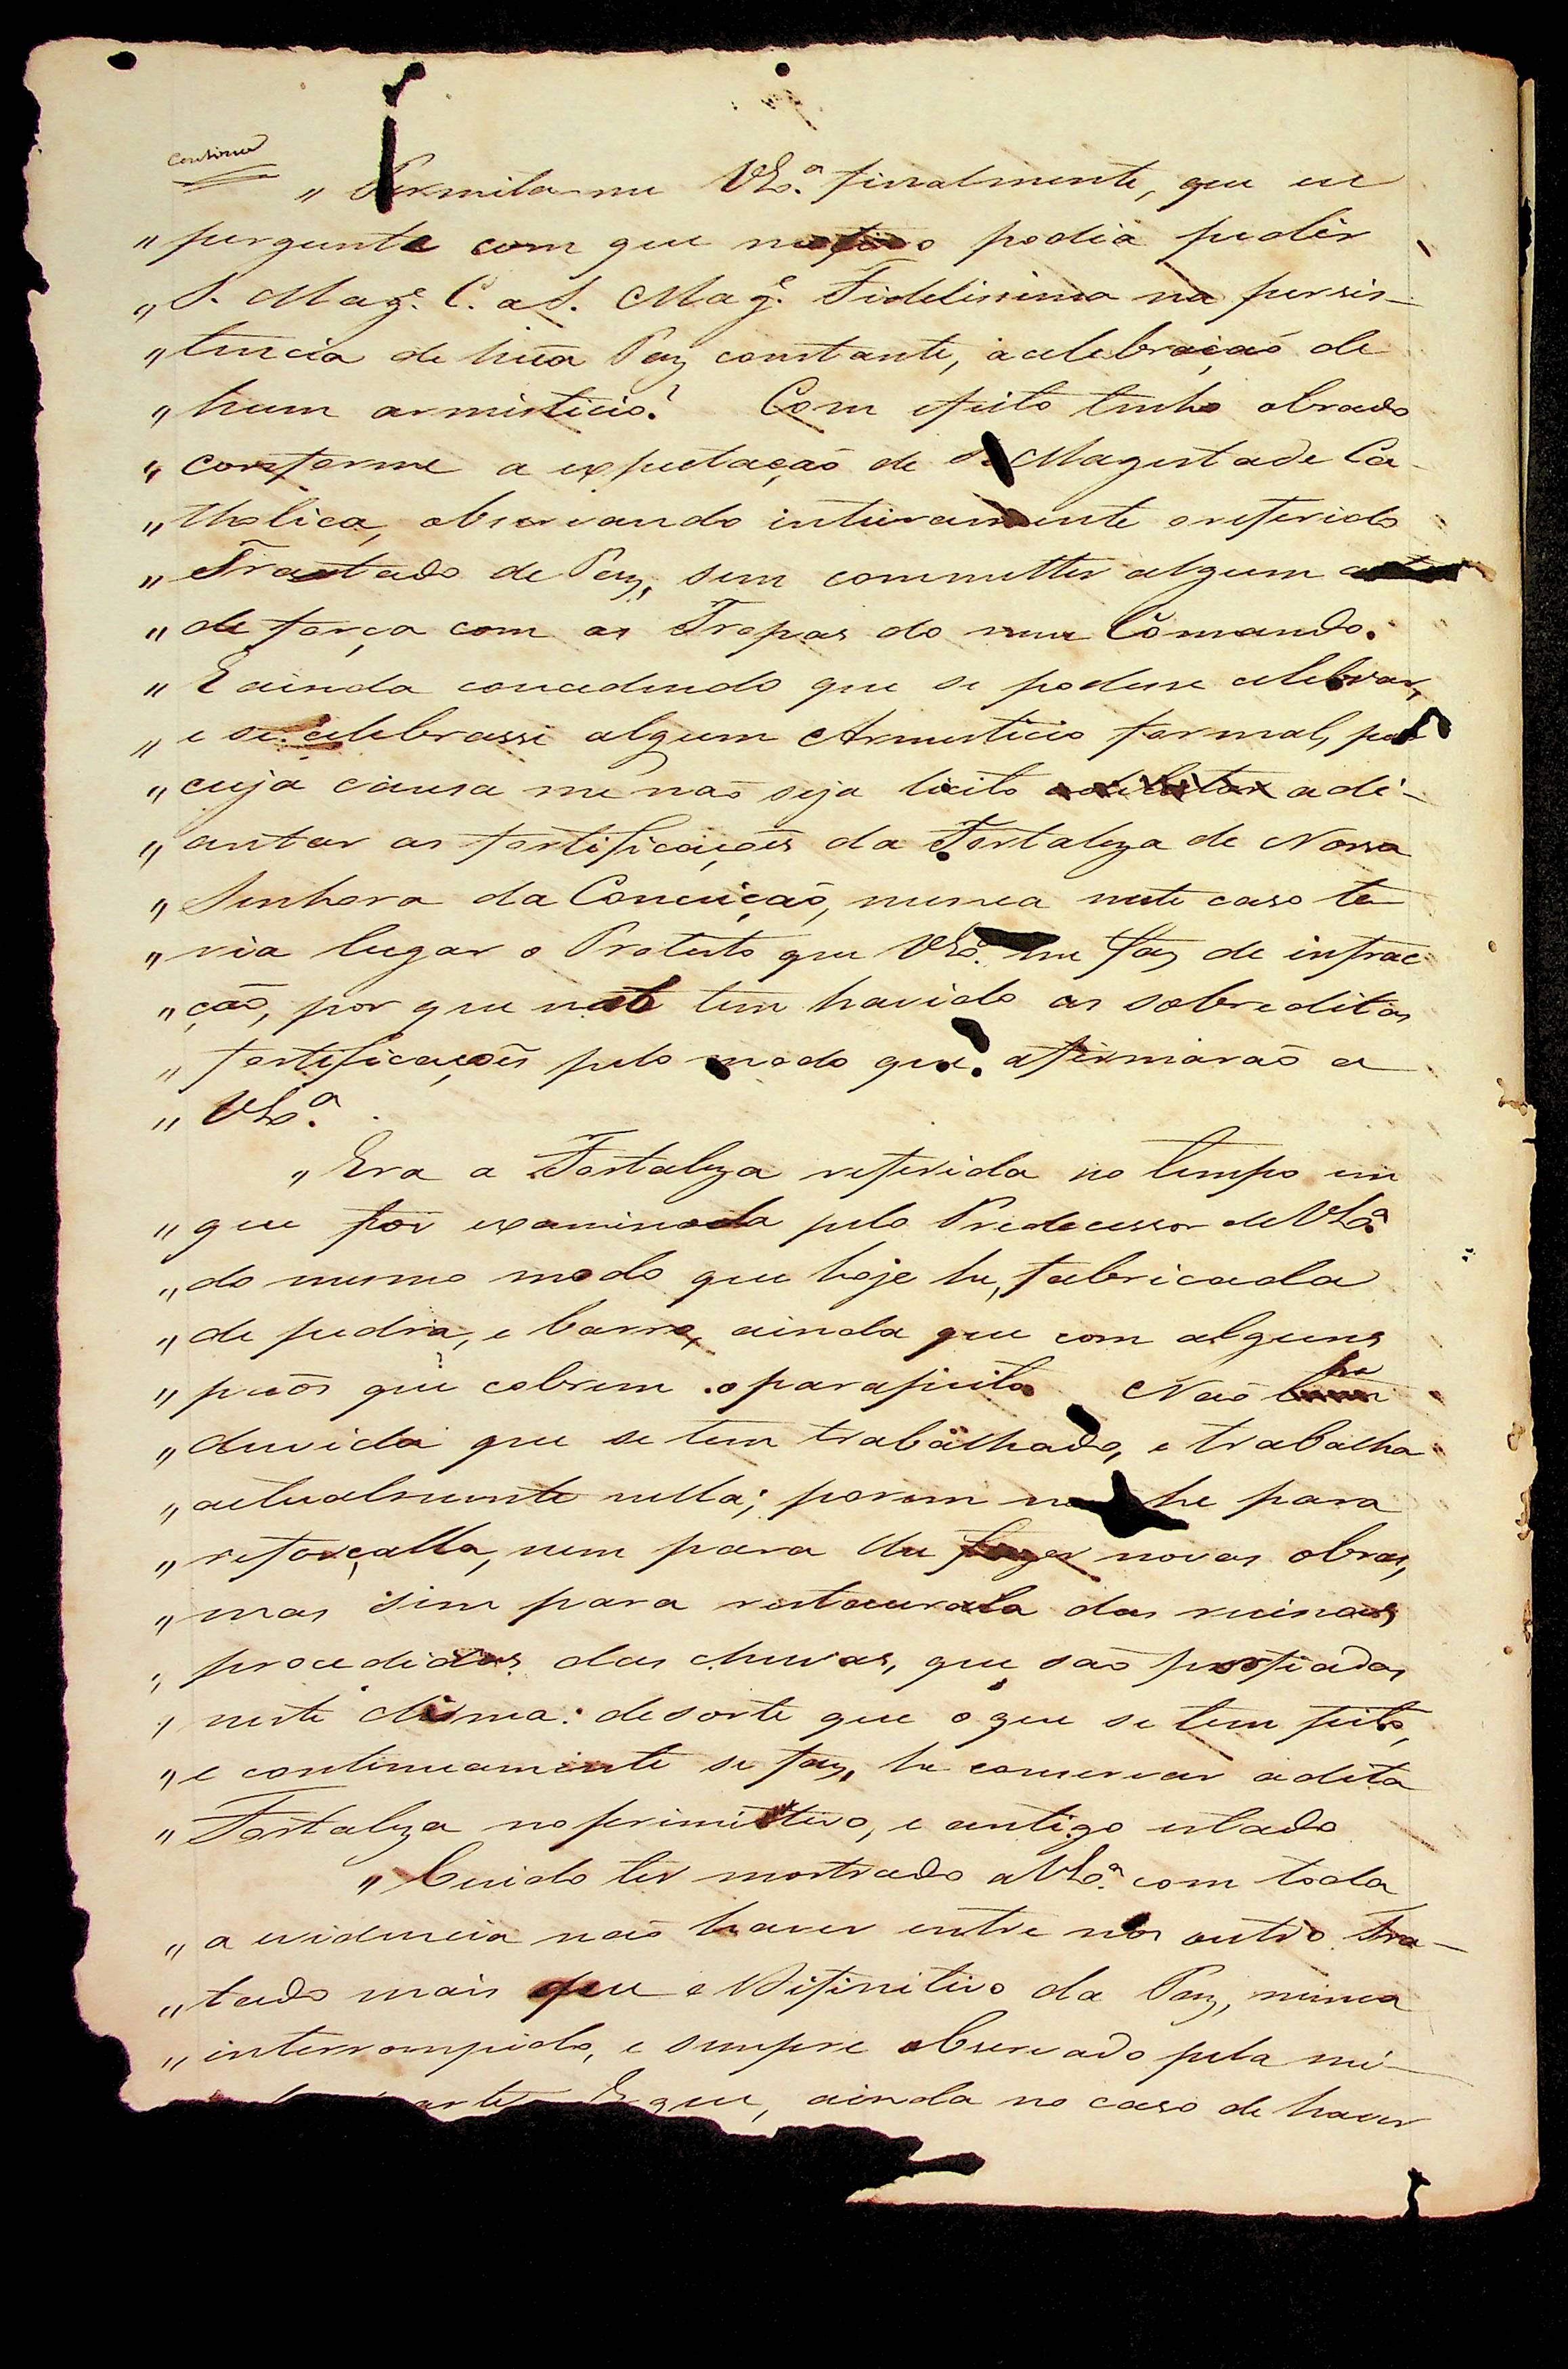 Continua
„ Permita-me VEx.ª finalmente, que eu
„ pergunte com que motivo podia pedir
„ S. Mag.e C. a S. Mag.e Fidelissima na persis-
„ tencia de hũa Paz constante, a celebração de
„ hum armisticio? Com efeito tenho obrado
„ conforme a expectação de S. Magestade Ca-
„ tholica, observando inteiramente o referido
„ Tractado de Paz, sem commetter algum acto
„ de força com as Tropas do meu Comando.
„ E ainda concedendo que se podesse celebrar,
„ e se celebrasse algum Armisticio formal, por
„ cuja causa me não seja licito adi-
„ antar as fortificações da Fortaleza de Nossa
„ Senhora da Conceição, nunca neste caso te-
„ ria lugar o Protesto que VEx.ª me faz de infrac-
„ ção, por que não tem havido as sobreditas
„ fortificações pelo modo que afirmarão a
„ VEx.ª
„ Era a Fortaleza referida no tempo em
„ que foi examinada pelo Predecessor de VEx.ª
„ do mesmo modo que hoje he, fabricada
„ de pedra, e barro, ainda que com alguns
„ que cobrem o parapeito Não ha
„ duvida que se tem trabalhado, e trabalha
„ actualmente nella; porem não he para
„ reforçalla, nem para lhe fazer novas obras,
„ mas sim para restaurala das ruinas
„ procedidas das chuvas, que são porfiadas
„ neste clima: de sorte que o que se tem feito,
„ e continuamente se faz, he conservar a dita
„ Fortaleza no primitivo, e antigo estado
„ Cuido ter mostrado a VEx.ª com toda
„ a evidencia não haver entre nós outro Tra-
„ tado mais que o Difinitivo da Paz, nunca
„ interrompido, e sempre observado pela mi-
parte E que, ainda no caso de haver